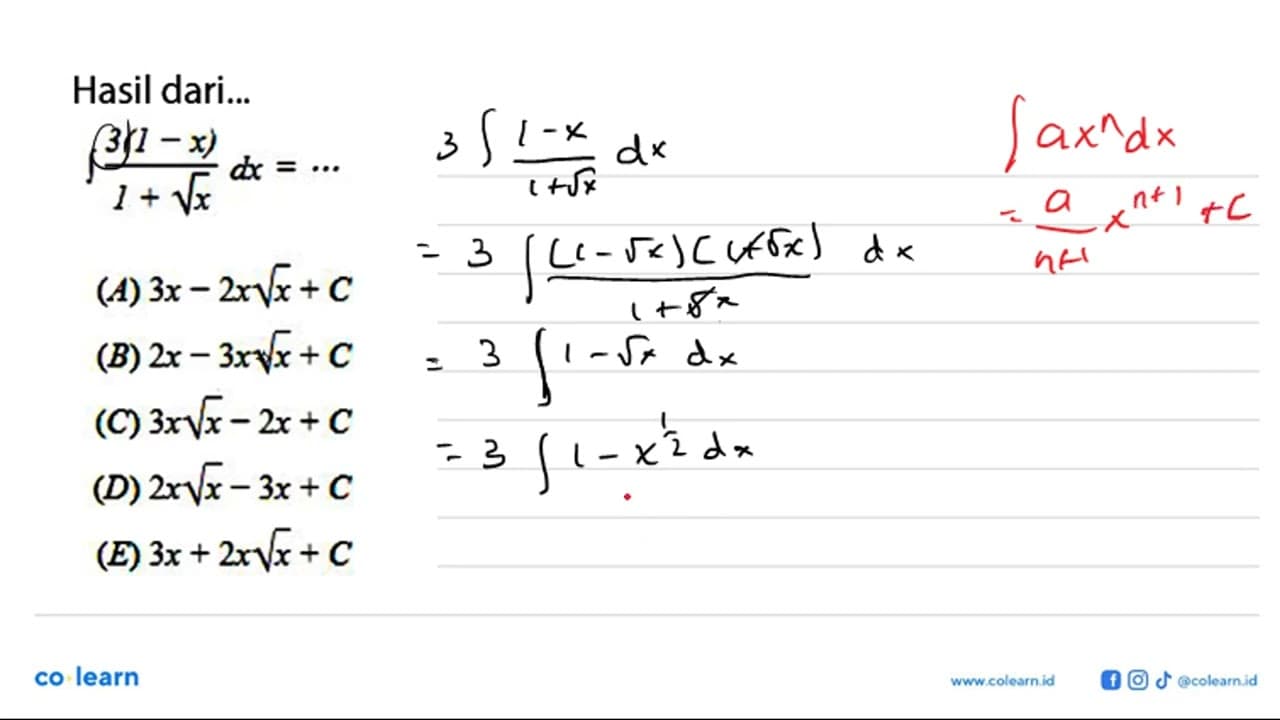 Hasil dari...
∫ 3(1 − x) / 1 + √x dx = ...
(A) 3x − 2x√x + C
(B) 2x − 3x√x + C
(C) 3x√x − 2x + C
(D) 2x√x − 3x + C
(E) 3x + 2x√x + C
3 ∫ 1-x / 1+√x dx
= 3 ∫ (1-√x)(1+√x) / 1+√x dx
= 3 ∫ 1-√x dx
= 3 ∫ 1-x^1/2 dx
∫ ax^n dx
= a/n+1 x^n+1 + C
co·learn
www.colearn.id
@colearn.id